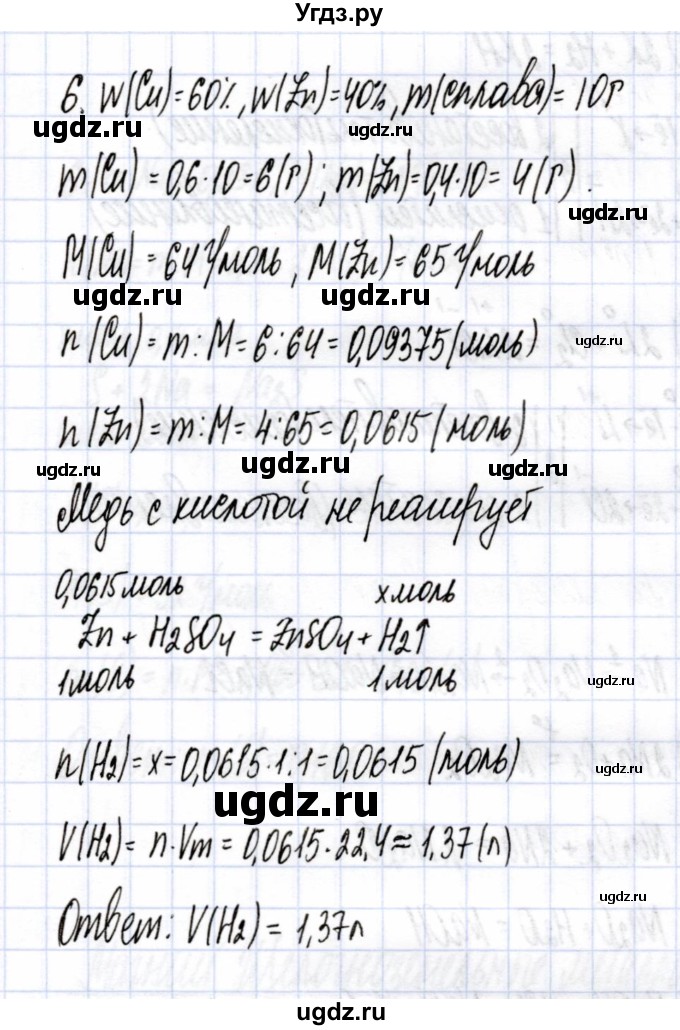 Угдз.ру
6. W(Cu)=60%, W(Zn)=40%, m(сплава)=10г
ugdz.ru ugdz.ru ugdz.ru
m(Cu)=0,6·10=6(г); m(Zn)=0,4·10=4(г).
ugdz.ru
M(Cu)=64 г/моль, M(Zn)=65 г/моль
ugdz.ru ugdz.ru
n(Cu)=m:M=6:64=0,09375(моль)
ugdz.ru
n(Zn)=m:M=4:65=0,0615(моль)
ugdz.ru ugdz.ru ugdz.ru
Медь с кислотой не реагирует
0,0615моль xмоль
Zn+H2SO4=ZnSO4+H2↑
1моль 1моль ugdz.ru
n(H2)=x=0,0615·1:1=0,0615(моль)
ugdz.ru ugdz.ru
V(H2)=n·Vm=0,0615·22,4≈1,37(л)
ugdz.ru
Ответ: V(H2)=1,37л
ugdz.ru
ugdz.ru